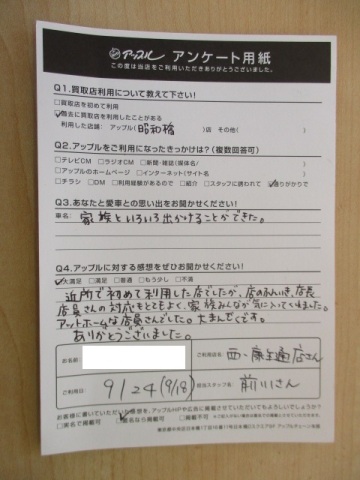 アップル アンケート用紙
この度は当店をご利用いただきありがとうございました。
Q1.買取店利用について教えて下さい!
□買取店を初めて利用
☑過去に買取店を利用したことがある
利用した店舗: アップル( 昭和橋 )店 その他( )
Q2.アップルをご利用になったきっかけは?(複数回答可)
□テレビCM □ラジオCM □新聞・雑誌(媒体名/ )
□アップルのホームページ □インターネット(サイト名 )
□チラシ □DM □利用経験があるので □紹介 □スタッフに誘われて ☑通りがかりで
Q3.あなたと愛車との思い出をお聞かせください!
車名: 家族といろいろ出かけることができた。
Q4.アップルに対する感想をぜひお聞かせください!
☑大満足 □満足 □普通 □もう少し □不満
近所で初めて利用した店でしたが、店のふんいき、店長
店員さんの対応もとても良く、家族みんなが気に入っていました。
アットホームな店員さんでした。大まんぞくです。
ありがとうございました。
お名前
ご利用店名 西・庚午通店さん
ご利用日 9/24(9/18)
担当スタッフ名 前川さん
お客様に書いていただいた感想を、アップルHPや広告に掲載させていただいてもよろしいでしょうか?
□実名で掲載可 ☑匿名なら掲載可 □掲載不可